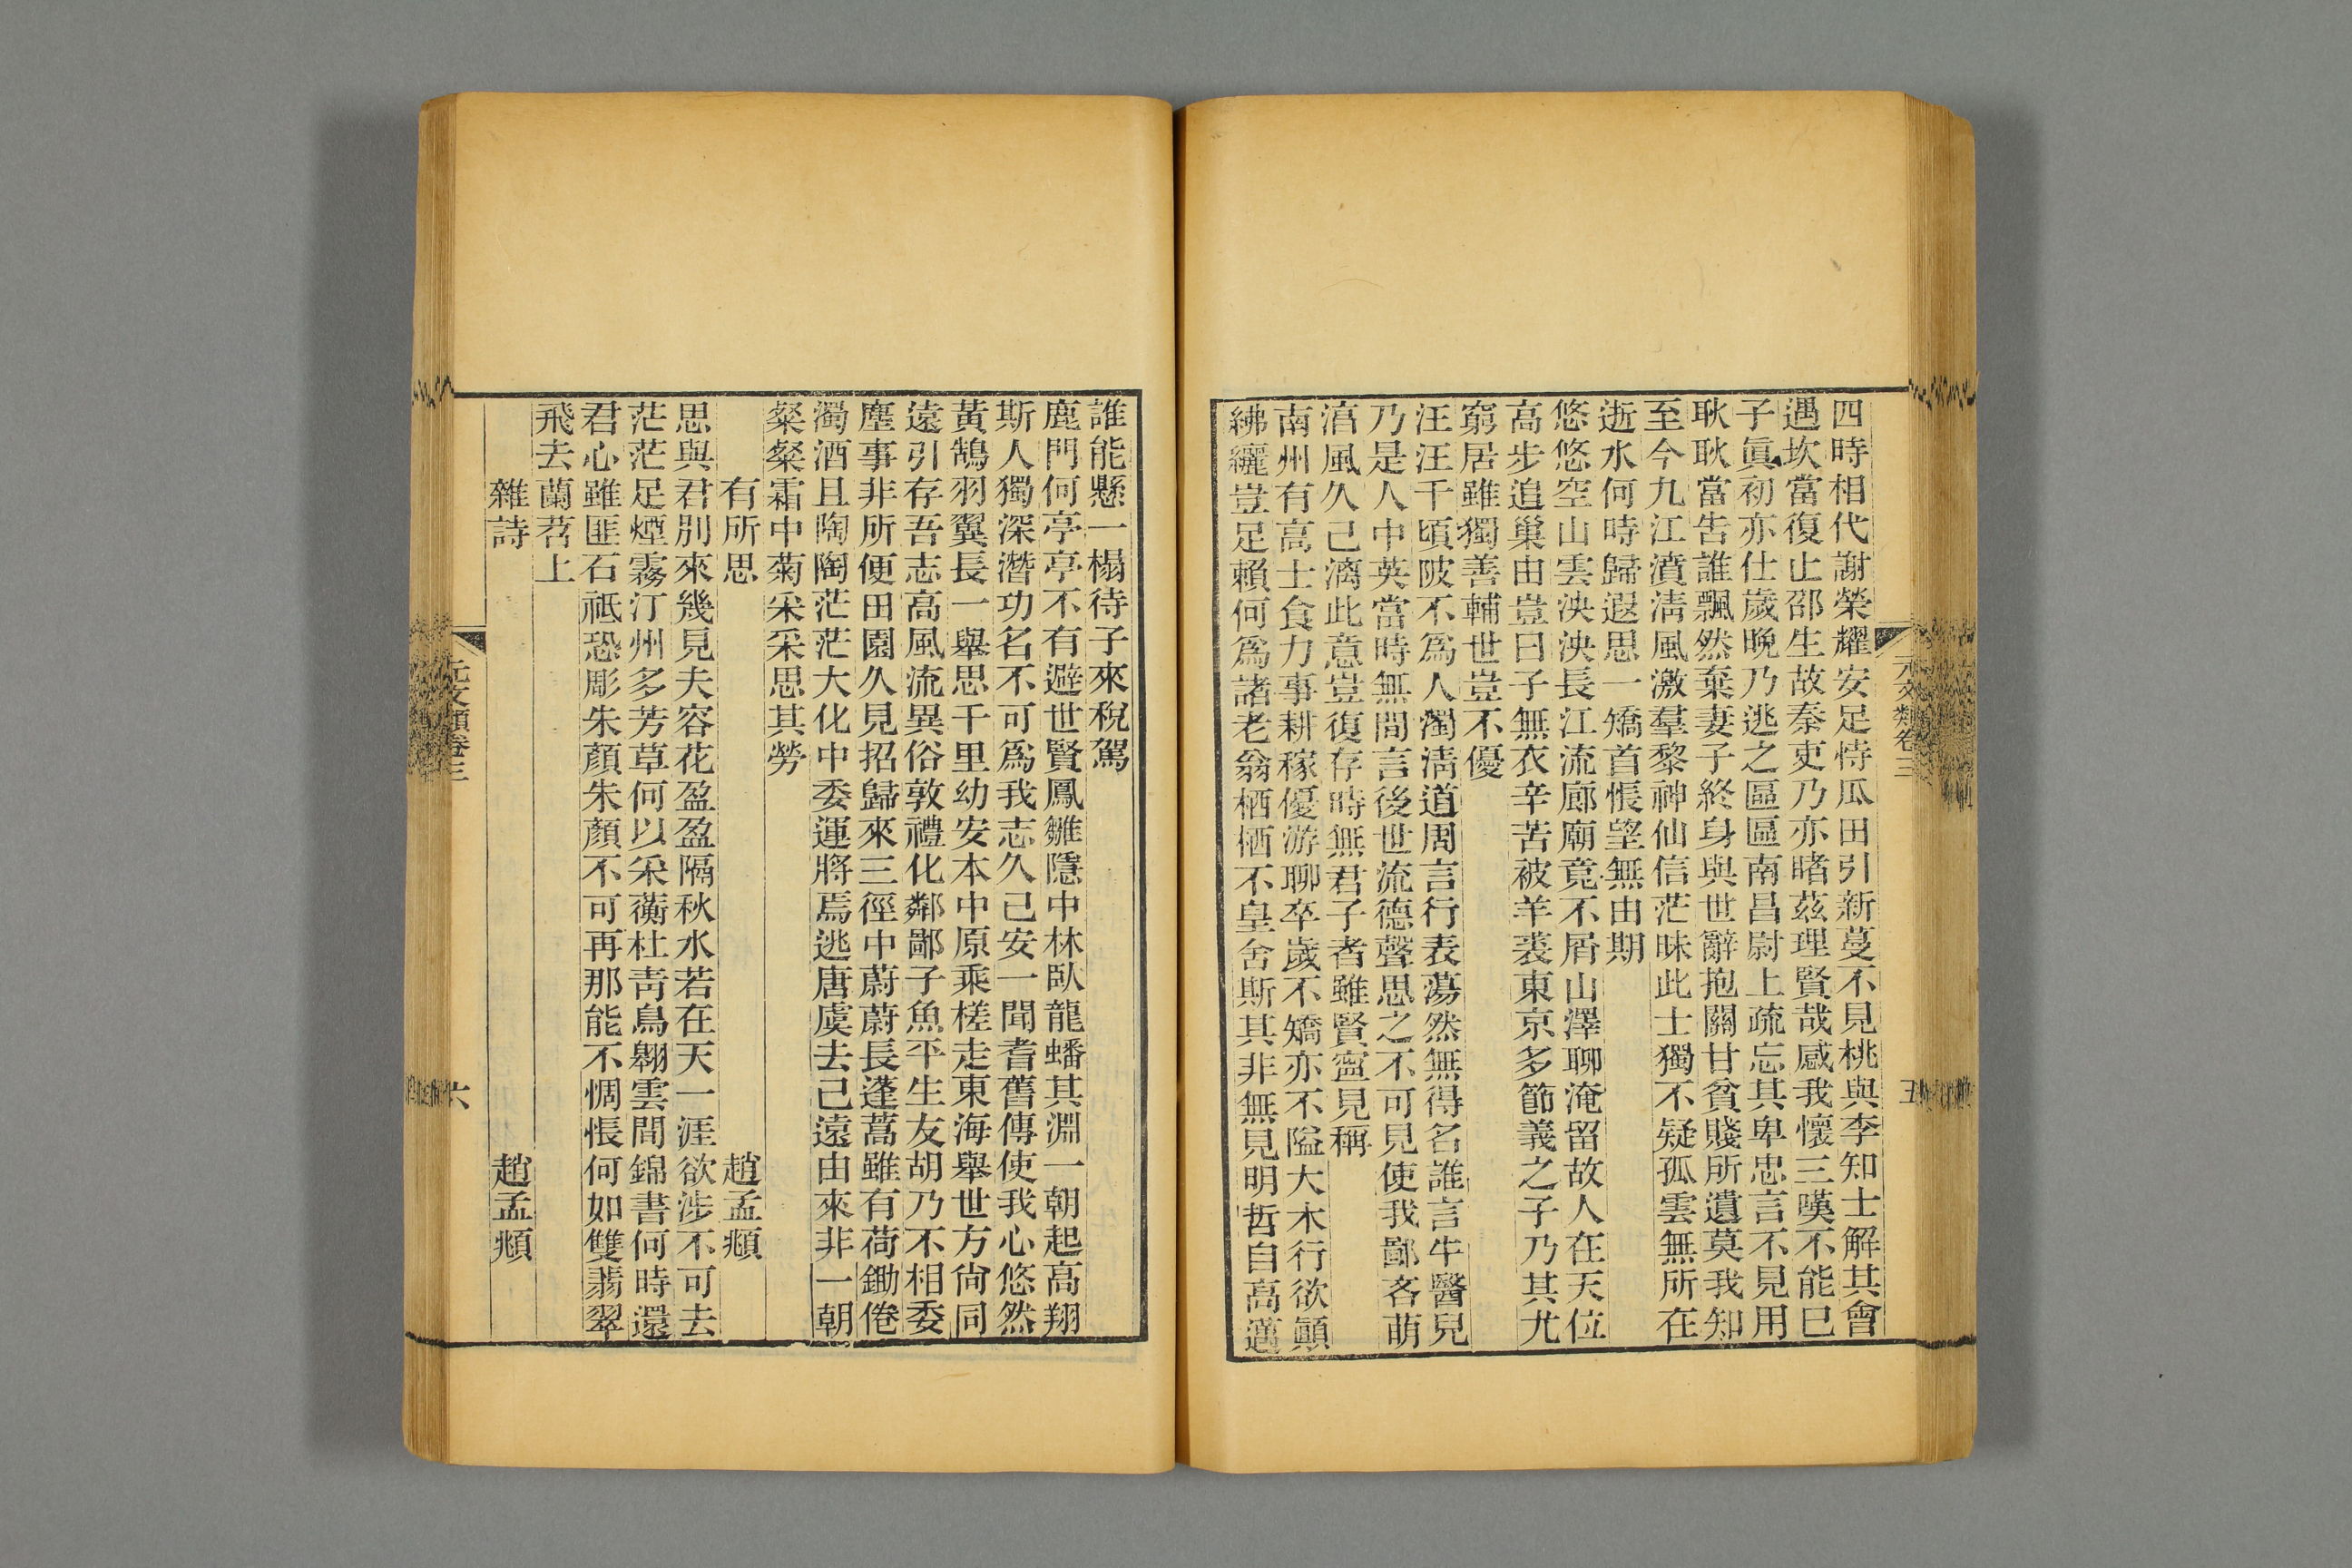 元文類卷三
五
四時相代謝榮耀安足恃瓜田引新蔓不見桃與李知士解其會
遇坎當復止邵生故秦吏乃亦睹茲理賢哉感我懷三嘆不能巳
子眞初亦仕歲晚乃逃之區區南昌尉上疏忘其卑忠言不見用
耿耿當吿誰飄然棄妻子終身與世辭抱關甘貧賤所遺莫我知
至今九江濆淸風激羣黎神仙信茫昧此士獨不疑孤雲無所在
逝水何時歸遐思一矯首悵望無由期
悠悠空山雲泱泱長江流廊廟竟不屑山澤聊淹留故人在天位
高步追巢由豈曰子無衣辛苦被羊裘東京多節義之子乃其尤
窮居雖獨善輔世豈不優
汪汪千頃陂不爲人濁淸道周言行表蕩然無得名誰言牛醫兒
乃是人中英當時無間言後世流德聲思之不可見使我鄙吝萌
湻風久己漓此意豈復存時無君子者雖賢寍見稱
南州有高士食力事耕稼優游聊卒歲不矯亦不隘大木行欲顚
紼纚豈足賴何爲諸老翁栖栖不皇舍斯其非無見明哲自高邁
誰能懸一榻待子來稅駕
鹿門何亭亭不有避世賢鳳雛隱中林臥龍蟠其淵一朝起高翔
斯人獨深潛功名不可爲我志久己安一聞耆舊傳使我心悠然
黃鵠羽翼長一舉思千里幼安本中原乘槎走東海舉世方尙同
遠引存吾志高風流異俗敦禮化鄰鄙子魚平生友胡乃不相委
塵事非所便田園久見招歸來三徑中蔚蔚長蓬蒿雖有荷鋤倦
濁酒且陶陶茫茫大化中委運將焉逃唐虞去己遠由來非一朝
粲粲霜中菊采采思其勞
有所思 趙孟頫
思與君別來幾見夫容花盈盈隔秋水若在天一涯欲涉不可去
茫茫足煙霧汀州多芳草何以采蘅杜靑鳥翺雲間錦書何時還
君心雖匪石祇恐彫朱顏朱顏不可再那能不惆悵何如雙翡翠
飛去蘭苕上
雜詩 趙孟頫
元文類卷三
六